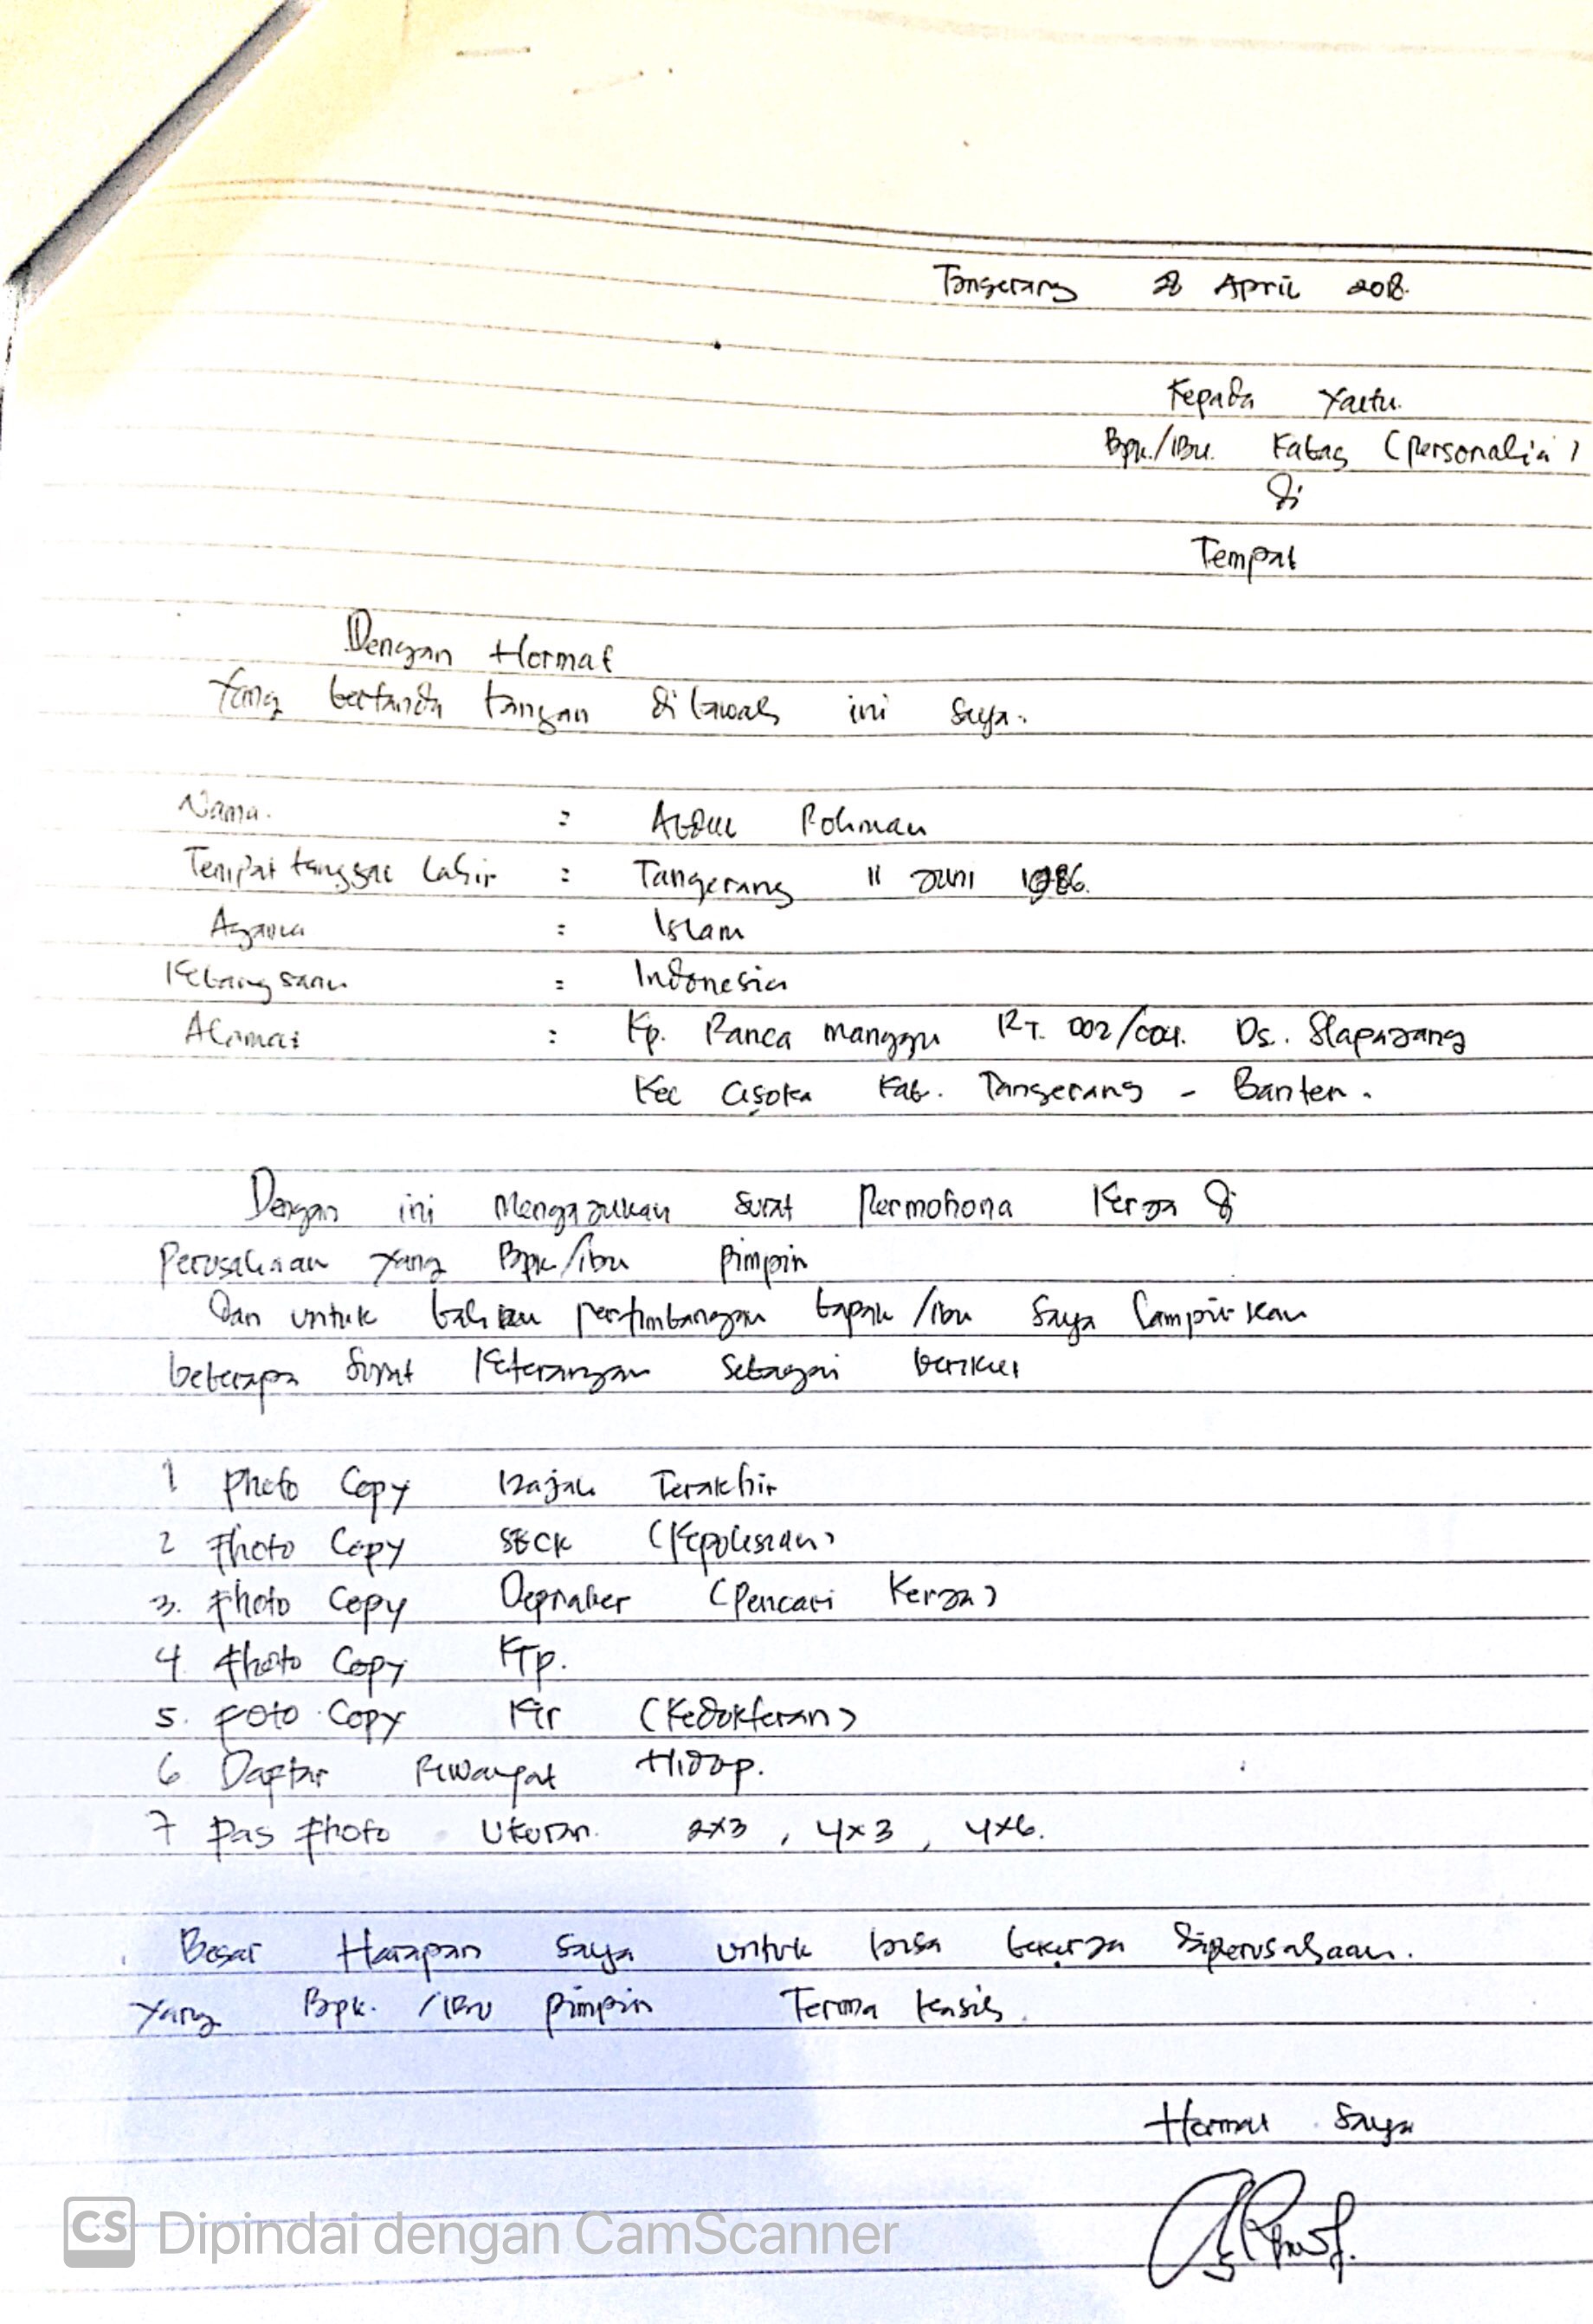 Tangerang 28 April 2018.
Kepada Yaitu.
Bpk./Ibu. Kabag (Personalia)
di
Tempat
Dengan Hormat
Yang bertanda tangan di bawah ini saya.
Nama. : Abdul Rohman
Tempat tanggal Lahir : Tangerang 11 Juni 1986.
Agama : Islam
Kebangsaan : Indonesia
Alamat : Kp. Ranca manggu RT. 002/004. Ds. Slapajang
Kec Cisoka Kab. Tangerang - Banten.
Dengan ini Mengajukan Surat Permohona Kerja di
Perusahaan yang Bpk/ibu pimpin
Dan untuk bahan pertimbangan bapak/ibu Saya Lampirkan
beberapa Surat Keterangan Sebagai berikut
1 Photo Copy Izajah Terakhir
2 Photo Copy SKCK (Kepolisian)
3. Photo Copy Depnaker (Pencari Kerja)
4. Photo Copy KTp.
5. Foto Copy Kir (Kedokteran)
6 Daftar Riwayat Hidup.
7 Pas Photo Ukuran. 2x3, 4x3, 4x6.
Besar Harapan Saya untuk bisa bekerja diperusahaan.
Yang Bpk. /IBU pimpin Terima kasih.
Hormat Saya
CS Dipindai dengan CamScanner